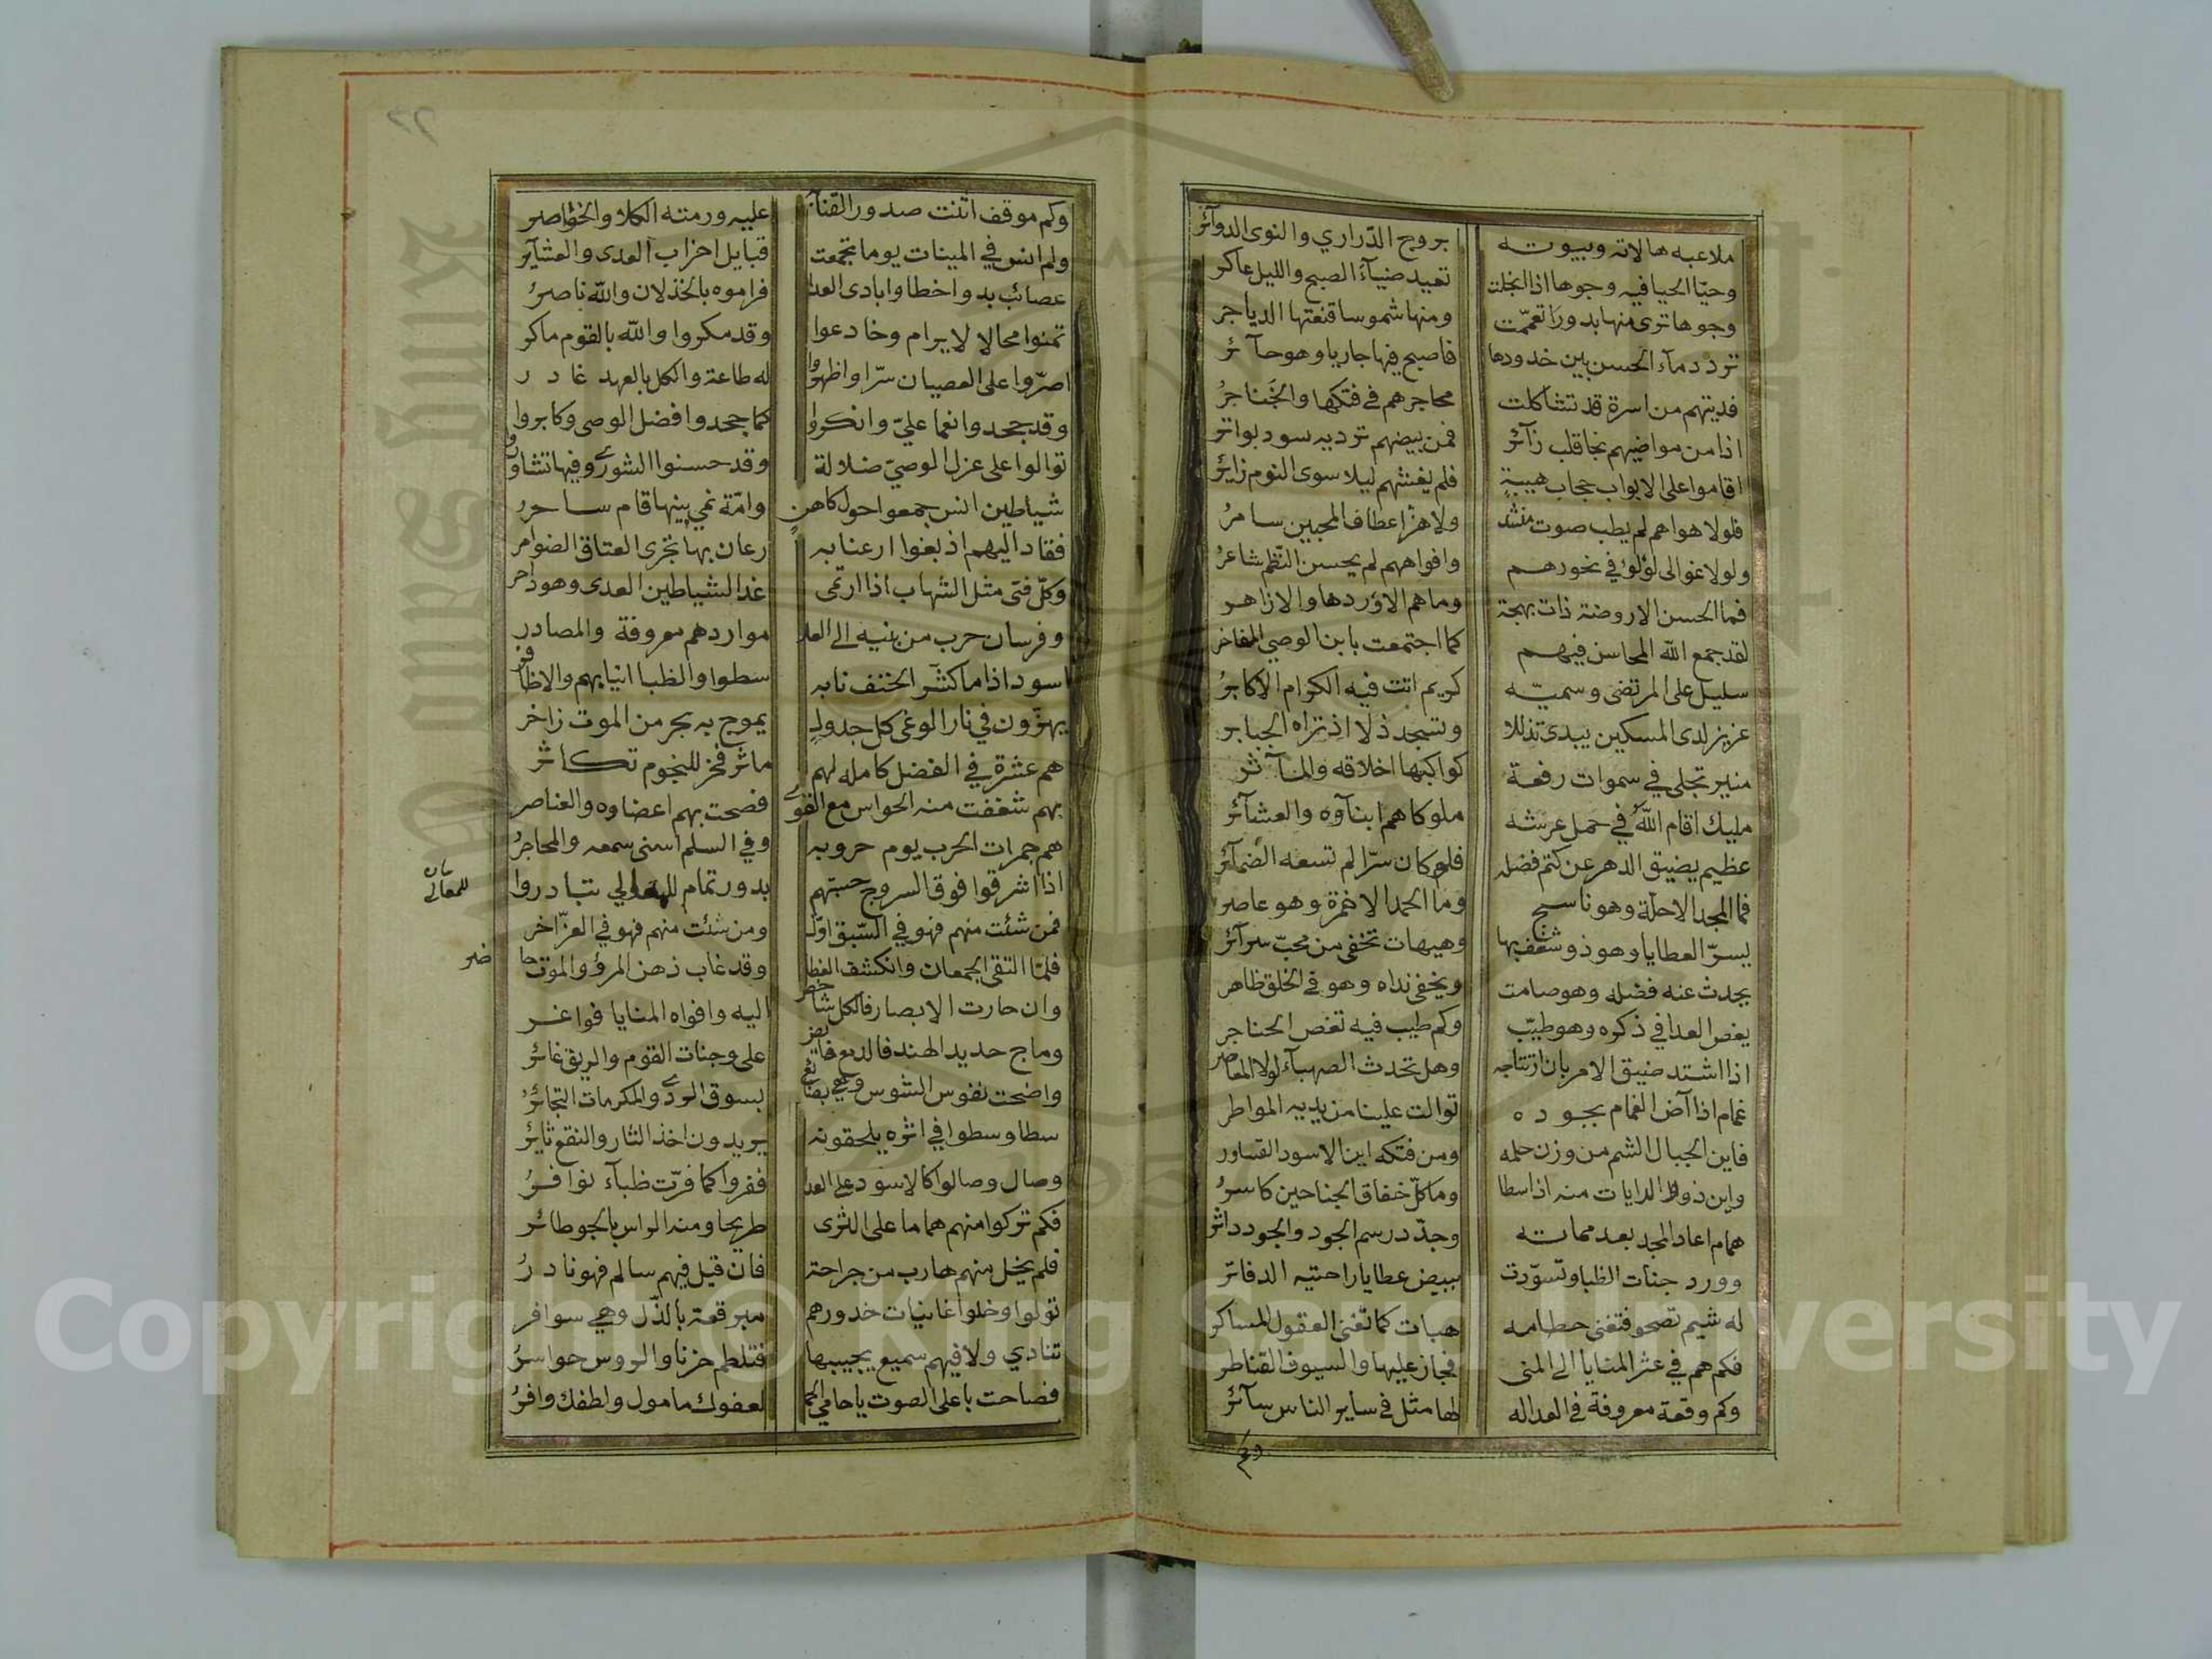 ملاعبه هالاته وبيوته بروج الدّراري والنوى الدوآئر
وحيّا الحيا فيه وجوها اذا انجلت تعيد ضيآء الصبح والليل عاكر
وجوها ترى منها بدورا تعمّمت ومنها شموسا قنعتها الدياجر
تردد مآء الحسن بين خدودها فاصبح فيها جاريا وهو حآئر
فديتهم من اسرة قد تشاكلت محاجرهم في فتكها والخناجرُ
اذا من مواضيهم نجا قلب زآئر فمن بيضهم ترديه سود بواتر
اقاموا على الابواب حجاب هيبةٍ فلم يغشهم ليلا سوى النوم زايرُ
فلولا هواهم لم يطب صوت منشد ولا هزّ اعطاف المحبين سامرُ
ولولا غوالى لؤلؤ في نحورهم وافواههم لم يحسن النّظم شاعرُ
فما الحسن الا روضة ذات بهجة وما هم الا وردها والازاهر
لقد جمع الله المحاسن فيهم كما اجتمعت بابن الوصي المفاخر
سليل على المرتضى وسميّه كريم اتت فيه الكرام الاكابرُ
عزيز لدى المسكين يبدى تذللا وتسجد ذلا اذ تراه الجبابر
منير تجلى في سموات رفعة كواكبها اخلاقه والمآثر
مليك اقام اللهُ في حمل عرشه ملوكا هم ابنآوه والعشآئرُ
عظيم يضيق الدهر عن كتم فضله فلو كان سرّا لم تسعه الضمآئرُ
فما المجد الا حلّة وهو ناسج وما الحمد الا خمرة وهو عاصر
يسرّ العطايا وهو ذو شغف بها وهيهات تخفى من محبّ سرآئرُ
يحدث عنه فضله وهو صامت ويخفى نداه وهو في الخلق ظاهر
يغص العدا في ذكره وهو طيّب وكم طيب فيه تغص الحناجر
اذا اشتد ضيق الامر بان ارتتاجه وهل تحدث الصهبآء لولا المعاصر
غمام اذا آض الغمام بجوده توالت علينا من يديه المواطر
فاين الجبال الشم من وزن حلمه ومن فتكه اين الاسود القساور
واين ذووا الرايات منه اذا سطا وما كلّ خفاق الجناحين كاسرُ
همام اعاد المجد بعد مماته وجدّد رسم الجود والجود داثرُ
وورد جنات الظبا وتسوّرت ببيض عطايا راحتيه الدفاتر
له شيم تصحو فتغنى حطامه هبات كما تغنى العقول المساكر
فكم هم في عثر المنايا الى المنى فجاز عليها والسيوف القناطر
وكم وقعة معروفة في العدا له لها مثل في ساير الناس سآئرُ
وكم
٢٢
وكم موقف اثنت صدور القنآ به عليه ورمته الكلا والخواصر
ولم انس في المينات يوما تجمعت قبايل احزاب العدى والعشآئر
عصائب بدو اخطاوا بادى العدا فراموه بالخذلان والله ناصرُ
تمنوا محالا لا يرام وخادعوا وقد مكروا والله بالقوم ماكر
اصرّوا على العصيان سرّا واظهروا له طاعة والكل بالعهد غادر
وقد جحدوا نعما عليّ وانكروا كما جحدوا فضل الوصى وكابروا
توالوا على عزل الوصيّ ضلالة وقد حسنوا الشورى وفيها تشاوروا
شياطين انس جمعوا حول كاهن وامّة غي بينها قام ساحرُ
فقاد اليهم اذ بغوا ارعنا به رعان بها تجرى العتاق الضوامر
وكلّ فتى مثل الشهاب اذا ارتمى غدا لشياطين العدى وهو داحر
وفرسان حرب من بنيه الى العلا مواردهم معروفة والمصادر
اسود اذا ما كشّر الحتف نابه سطوا والظبا انيابهم والاظافر
يهزّون في نار الوغى كل جدولٍ يموج به بحر من الموت زاخر
هم عشرة في الفضل كامله لهم مآثر فخر للنجوم تكاثرُ
بهم شغفت منه الحواس مع القوى فصحت بهم اعضاوه والعناصر
هم جمرات الحرب يوم حروبه وفي السلم اسنى سمعه والمحاجرُ
اذا اشرقوا فوق السروج حسبتهم بدور تمام للمعالي تبادروا
للمعالي
فمن شئت منهم فهو في السّبق اوّل ومن شئت منهم فهو في العزّ اخر
فلمّا التقى الجمعان وانكشف الغطا وقد غاب ذهن المرؤ والموت حاضر
وان حارت الابصار فالكل شاخص اليه وافواه المنايا فواغر
وماج حديد الهند فالدمع فائض على وجنات القوم والريق غائرُ
واضحت نفوس الشوس وهي بضائع بسوق الردى والمكرمات التجائرُ
سطا وسطوا في اثره يلحقونه يريدون اخذ الثار والنقع ثايرُ
وصال وصالوا كالاسود على العدا ففروا كما فرّت ظبآء نوافرُ
فكم تركوا منهم هماما على الثرى طريحا ومنه الراس بالجو طائر
فلم يخل منهم هارب من جراحة فان قيل فيهم سالم فهو نادرُ
تولوا وخلوا غانيات خدورهم مبرقعة بالذّل وهي سوافر
تنادي ولا فيهم سميع يجيبها فتلطم حزنا والروس حواسرُ
فصاحت باعلى الصوت يا حامي الحمى لعفوك مامول ولطفك وافرُ
Copyright © King Saud University